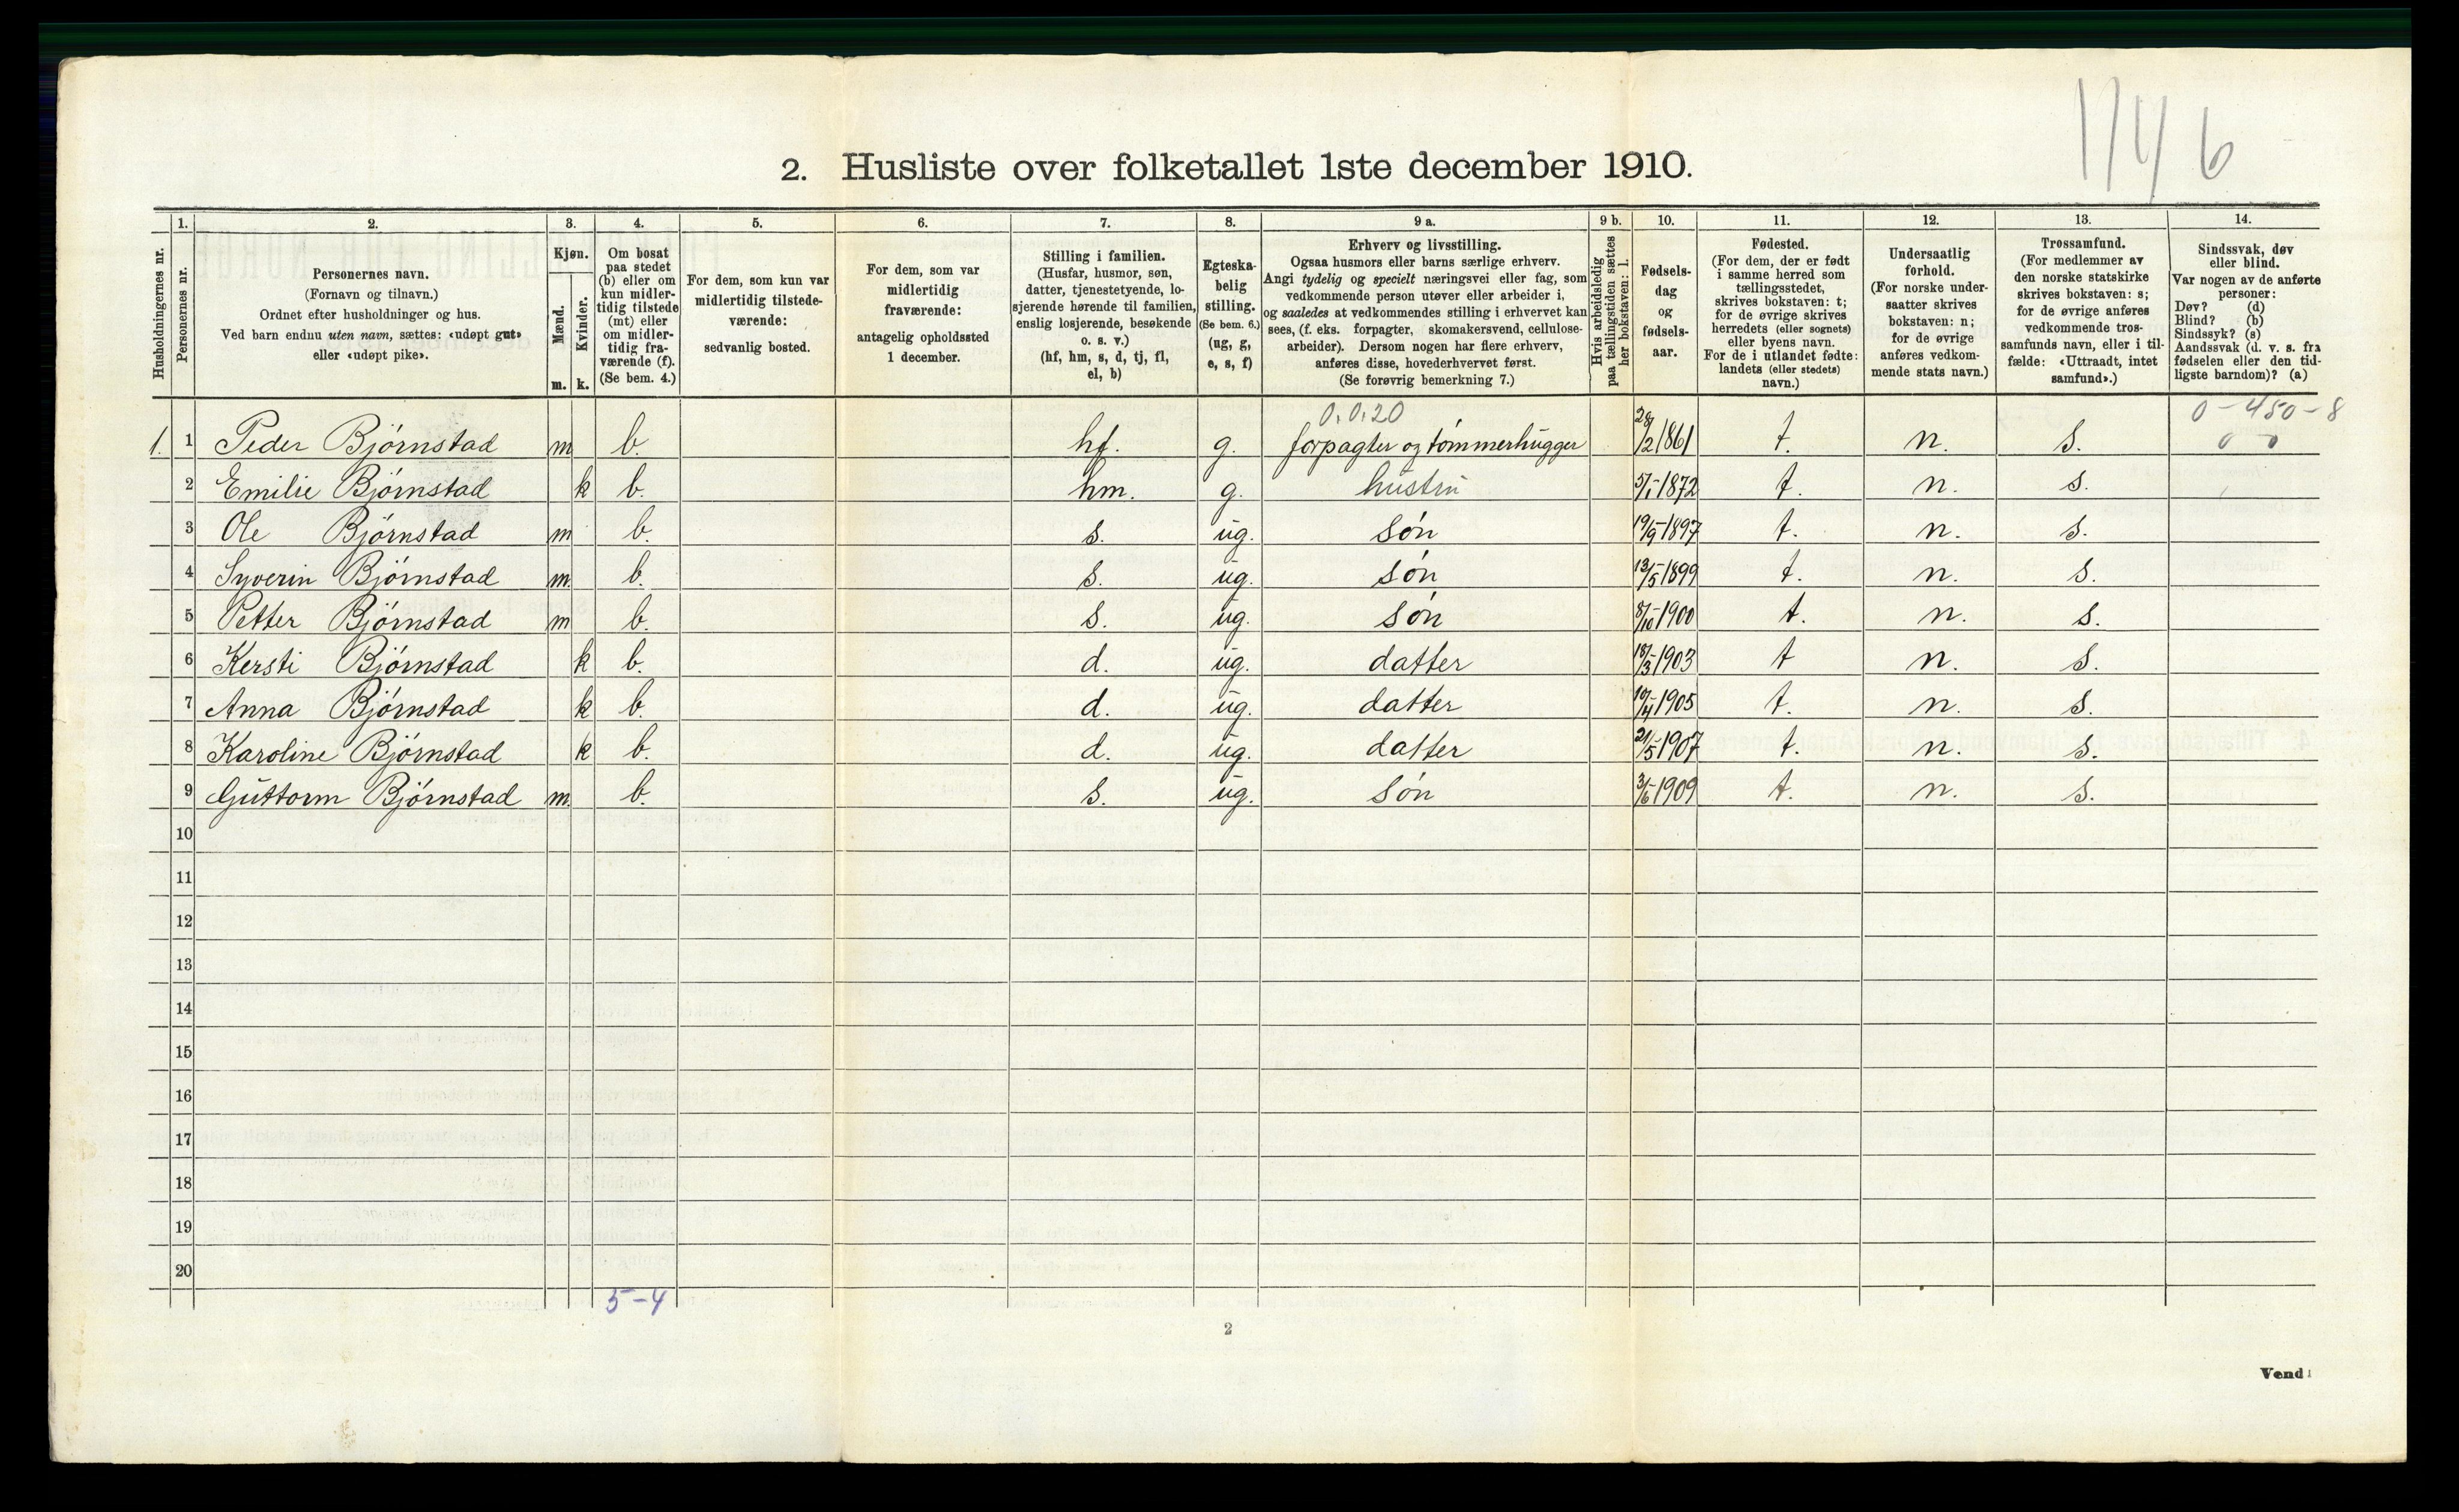 1746
2. Husliste over folketallet 1ste december 1910.
Husholdningernes nr.
1. Personernes nr.
2. Personernes navn.
(Fornavn og tilnavn.)
Ordnet efter husholdninger og hus.
Ved barn endnu uten navn, sættes: «udøpt gut»
eller «udøpt pike».
3. Kjøn.
Mænd. m.
Kvinder. k.
4. Om bosat
paa stedet
(b) eller om
kun midler-
tidig tilstede
(mt) eller
om midler-
tidig fra-
værende (f).
(Se bem. 4.)
5. For dem, som kun var
midlertidig tilstede-
værende:
sedvanlig bosted.
6. For dem, som var
midlertidig
fraværende:
antagelig opholdssted
1 december.
7. Stilling i familien.
(Husfar, husmor, søn,
datter, tjenestetyende, lo-
sjerende hørende til familien,
enslig losjerende, besøkende
o. s. v.)
(hf, hm, s, d, tj, fl,
el, b)
8. Egteska-
belig
stilling.
(Se bem. 6.)
(ug, g,
e, s, f)
9 a. Erhverv og livsstilling.
Ogsaa husmors eller barns særlige erhverv.
Angi tydelig og specielt næringsvei eller fag, som
vedkommende person utøver eller arbeider i,
og saaledes at vedkommendes stilling i erhvervet kan
sees, (f. eks. forpagter, skomakersvend, cellulose-
arbeider). Dersom nogen har flere erhverv,
anføres disse, hovederhvervet først.
(Se forøvrig bemerkning 7.)
9 b. Hvis arbeidsledig
paa tællingstiden sættes
her bokstaven: l.
10. Fødsels-
dag
og
fødsels-
aar.
11. Fødested.
(For dem, der er født
i samme herred som
tællingsstedet,
skrives bokstaven: t;
for de øvrige skrives
herredets (eller sognets)
eller byens navn.
For de i utlandet fødte:
landets (eller stedets)
navn.)
12. Undersaatlig
forhold.
(For norske under-
saatter skrives
bokstaven: n;
for de øvrige
anføres vedkom-
mende stats navn.)
13. Trossamfund.
(For medlemmer av
den norske statskirke
skrives bokstaven: s;
for de øvrige anføres
vedkommende tros-
samfunds navn, eller i til-
fælde: «Uttraadt, intet
samfund».)
14. Sindssvak, døv
eller blind.
Var nogen av de anførte
personer:
Døv? (d)
Blind? (b)
Sindssyk? (s)
Aandssvak (d. v. s. fra
fødselen eller den tid-
ligste barndom)? (a)
0.0.20 0-450-8
1. 1 Peder Bjørnstad m b. hf. g. forpagter og tømmerhugger 28/2 1861 t. n. s. 0 0
2 Emilie Bjørnstad k b. hm. g. hustru 5/1-1872 t. n. s.
3 Ole Bjørnstad m b. s. ug. søn 19/9-1897 t. n. s.
4 Syverin Bjørnstad m. b. s. ug. søn 13/5-1899 t. n. s.
5 Petter Bjørnstad m b. s. ug. søn 8/10-1900 t. n. s.
6 Kersti Bjørnstad k b. d. ug. datter 18/3-1903 t n. s.
7 Anna Bjørnstad k b. d. ug. datter 10/4-1905 t. n. s.
8 Karoline Bjørnstad k b. d. ug. datter 21/5-1907 t. n. s.
9 Guttorm Bjørnstad m. b. s. ug. søn 3/6-1909 t. n. s.
10
11
12
13
14
15
16
17
18
19
20
5-4
2
Vend!